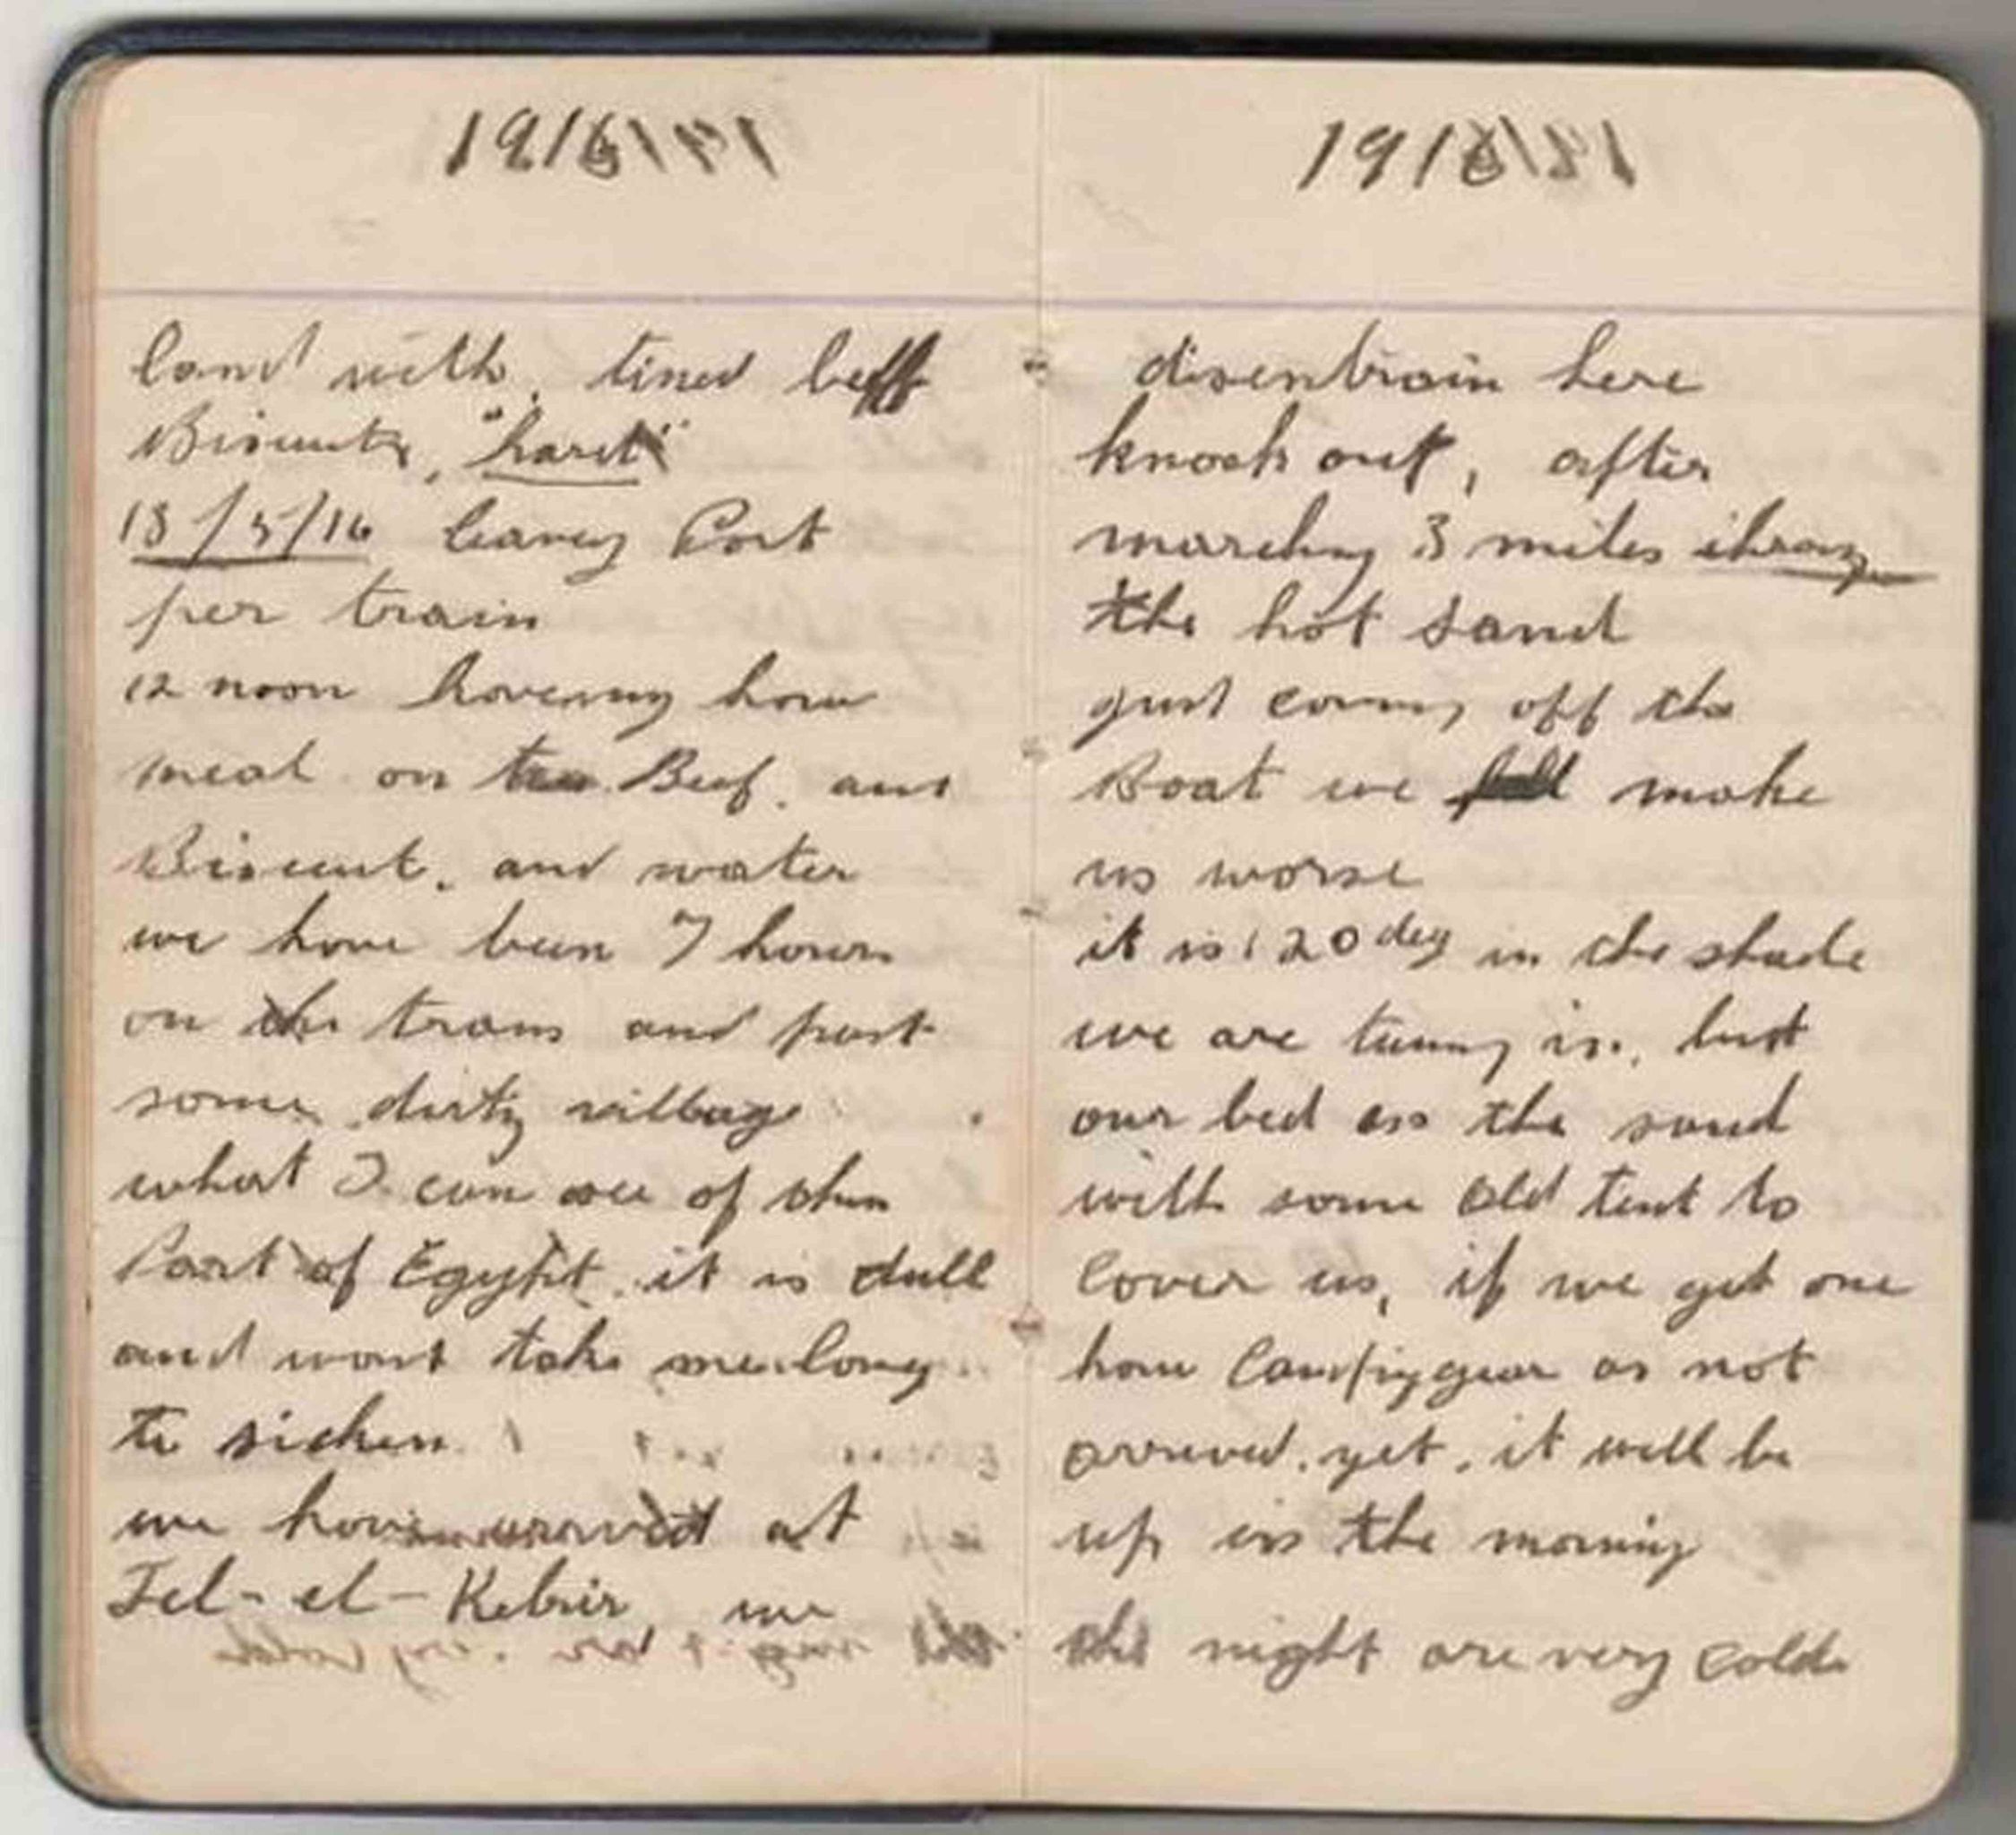 1916
land with, tined beff
Biscuits, "hard"
18/3/16 leaving Port
per train
12 noon haveing
meal on Beef. and
Biscuit. and water
we have been 7 hours
on the train and past
some dirty village
what I can see of this
Part of Egypt. it is dull
and wont take me long
to sicken
we have arrived at
Tel-el-Kebir, we
1916
disentrain here
knock out, after
marching 3 miles
the hot sand
just coming off the
Boat we make
us worse
it is 120 deg in the shade
we are in, but
our bed is the sand
with some old tent to
Cover us, if we get one
as not
arrived. yet, it will be
up in the morning
the night are very colde